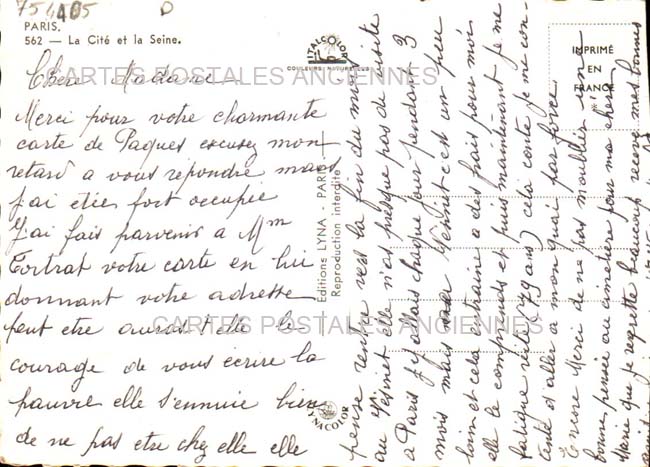 754405 D
PARIS.
562 — La Cité et la Seine.
ITALCOLOR
COULEURS NATURELLES
IMPRIMÉ
EN
FRANCE
CARTES POSTALES ANCIENNES
Chère Madame
Merci pour votre charmante
carte de Paques excusez mon
retard a vous répondre mais
j'ai étée fort occupée
J'ai fais parvenir a Mm
Tortrat votre carte en lui
donnant votre adresse
peut etre aurait elle le
CARTES POSTALES ANCIENNES
courage de vous écrire la
pauvre elle s'ennuie bien
de ne pas etre chez elle elle
Editions LYNA - PARIS
Reproduction interdite
LYNACOLOR
pense rentrer vers la fin du mois
au Vésinet elle n'as presque pas de visite
a Paris j'y allais chaque jour pendant 3
mois mais au Vésinet c'est un peu
loin et cela entraine a des frais pour moi
elle le comprends et puis maintenant je me
fatigue vite (79 ans) celà conte je me con-
tente d'aller a mon quai par force
Encore Merci de ne pas m'oublier un
bonne pensée au cimetiere pour ma chere
Marie que je regrette beaucoup recevez mes bonnes